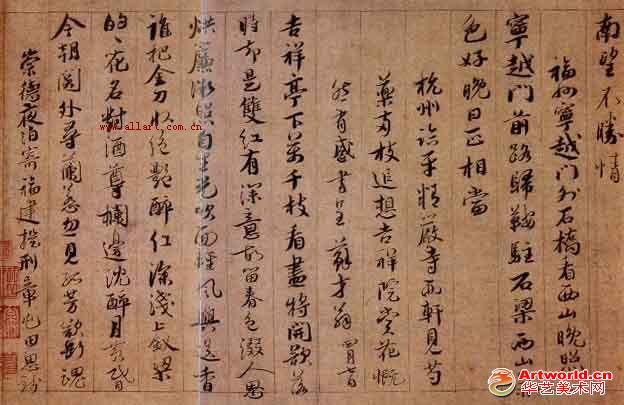 南望不勝情
福州寧越門外石橋看西山晚照
寧越門前路歸鞍駐石梁西山
色好晚日正相當
杭州臨平精嚴寺西軒見芍
藥兩枝追想吉祥院賞花慨
然有感書呈蘇才翁 四月七日
吉祥亭下萬千枝看盡將開欲落
時却是雙紅有深意故留春色綴人思
烘簾微照自生光吹面輕風與送香
誰把金刀收絕艷醉紅深淺上釵梁
的〻花名對酒尊欄邊沈醉月黃昏
今朝關外尋蘭蕙忽見孤芳欲斷魂
崇德夜泊寄福建提刑章屯田思錢
www.allart.com.cn
Artworld.cn
华艺美术网